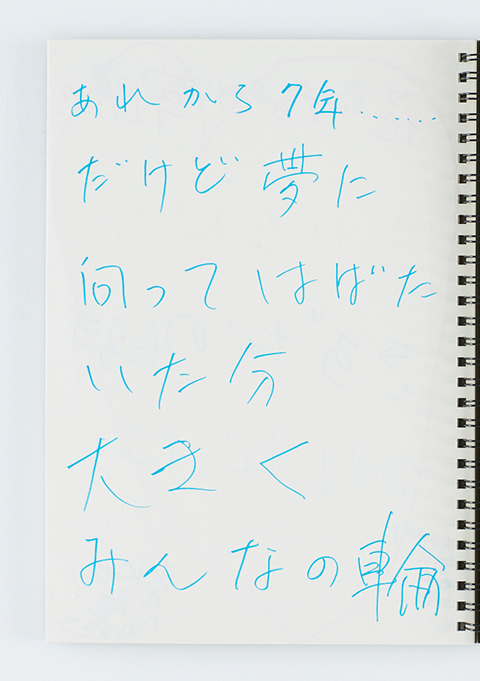 あれから7年……
だけど夢に
向ってはばた
いた分
大きく
みんなの輪